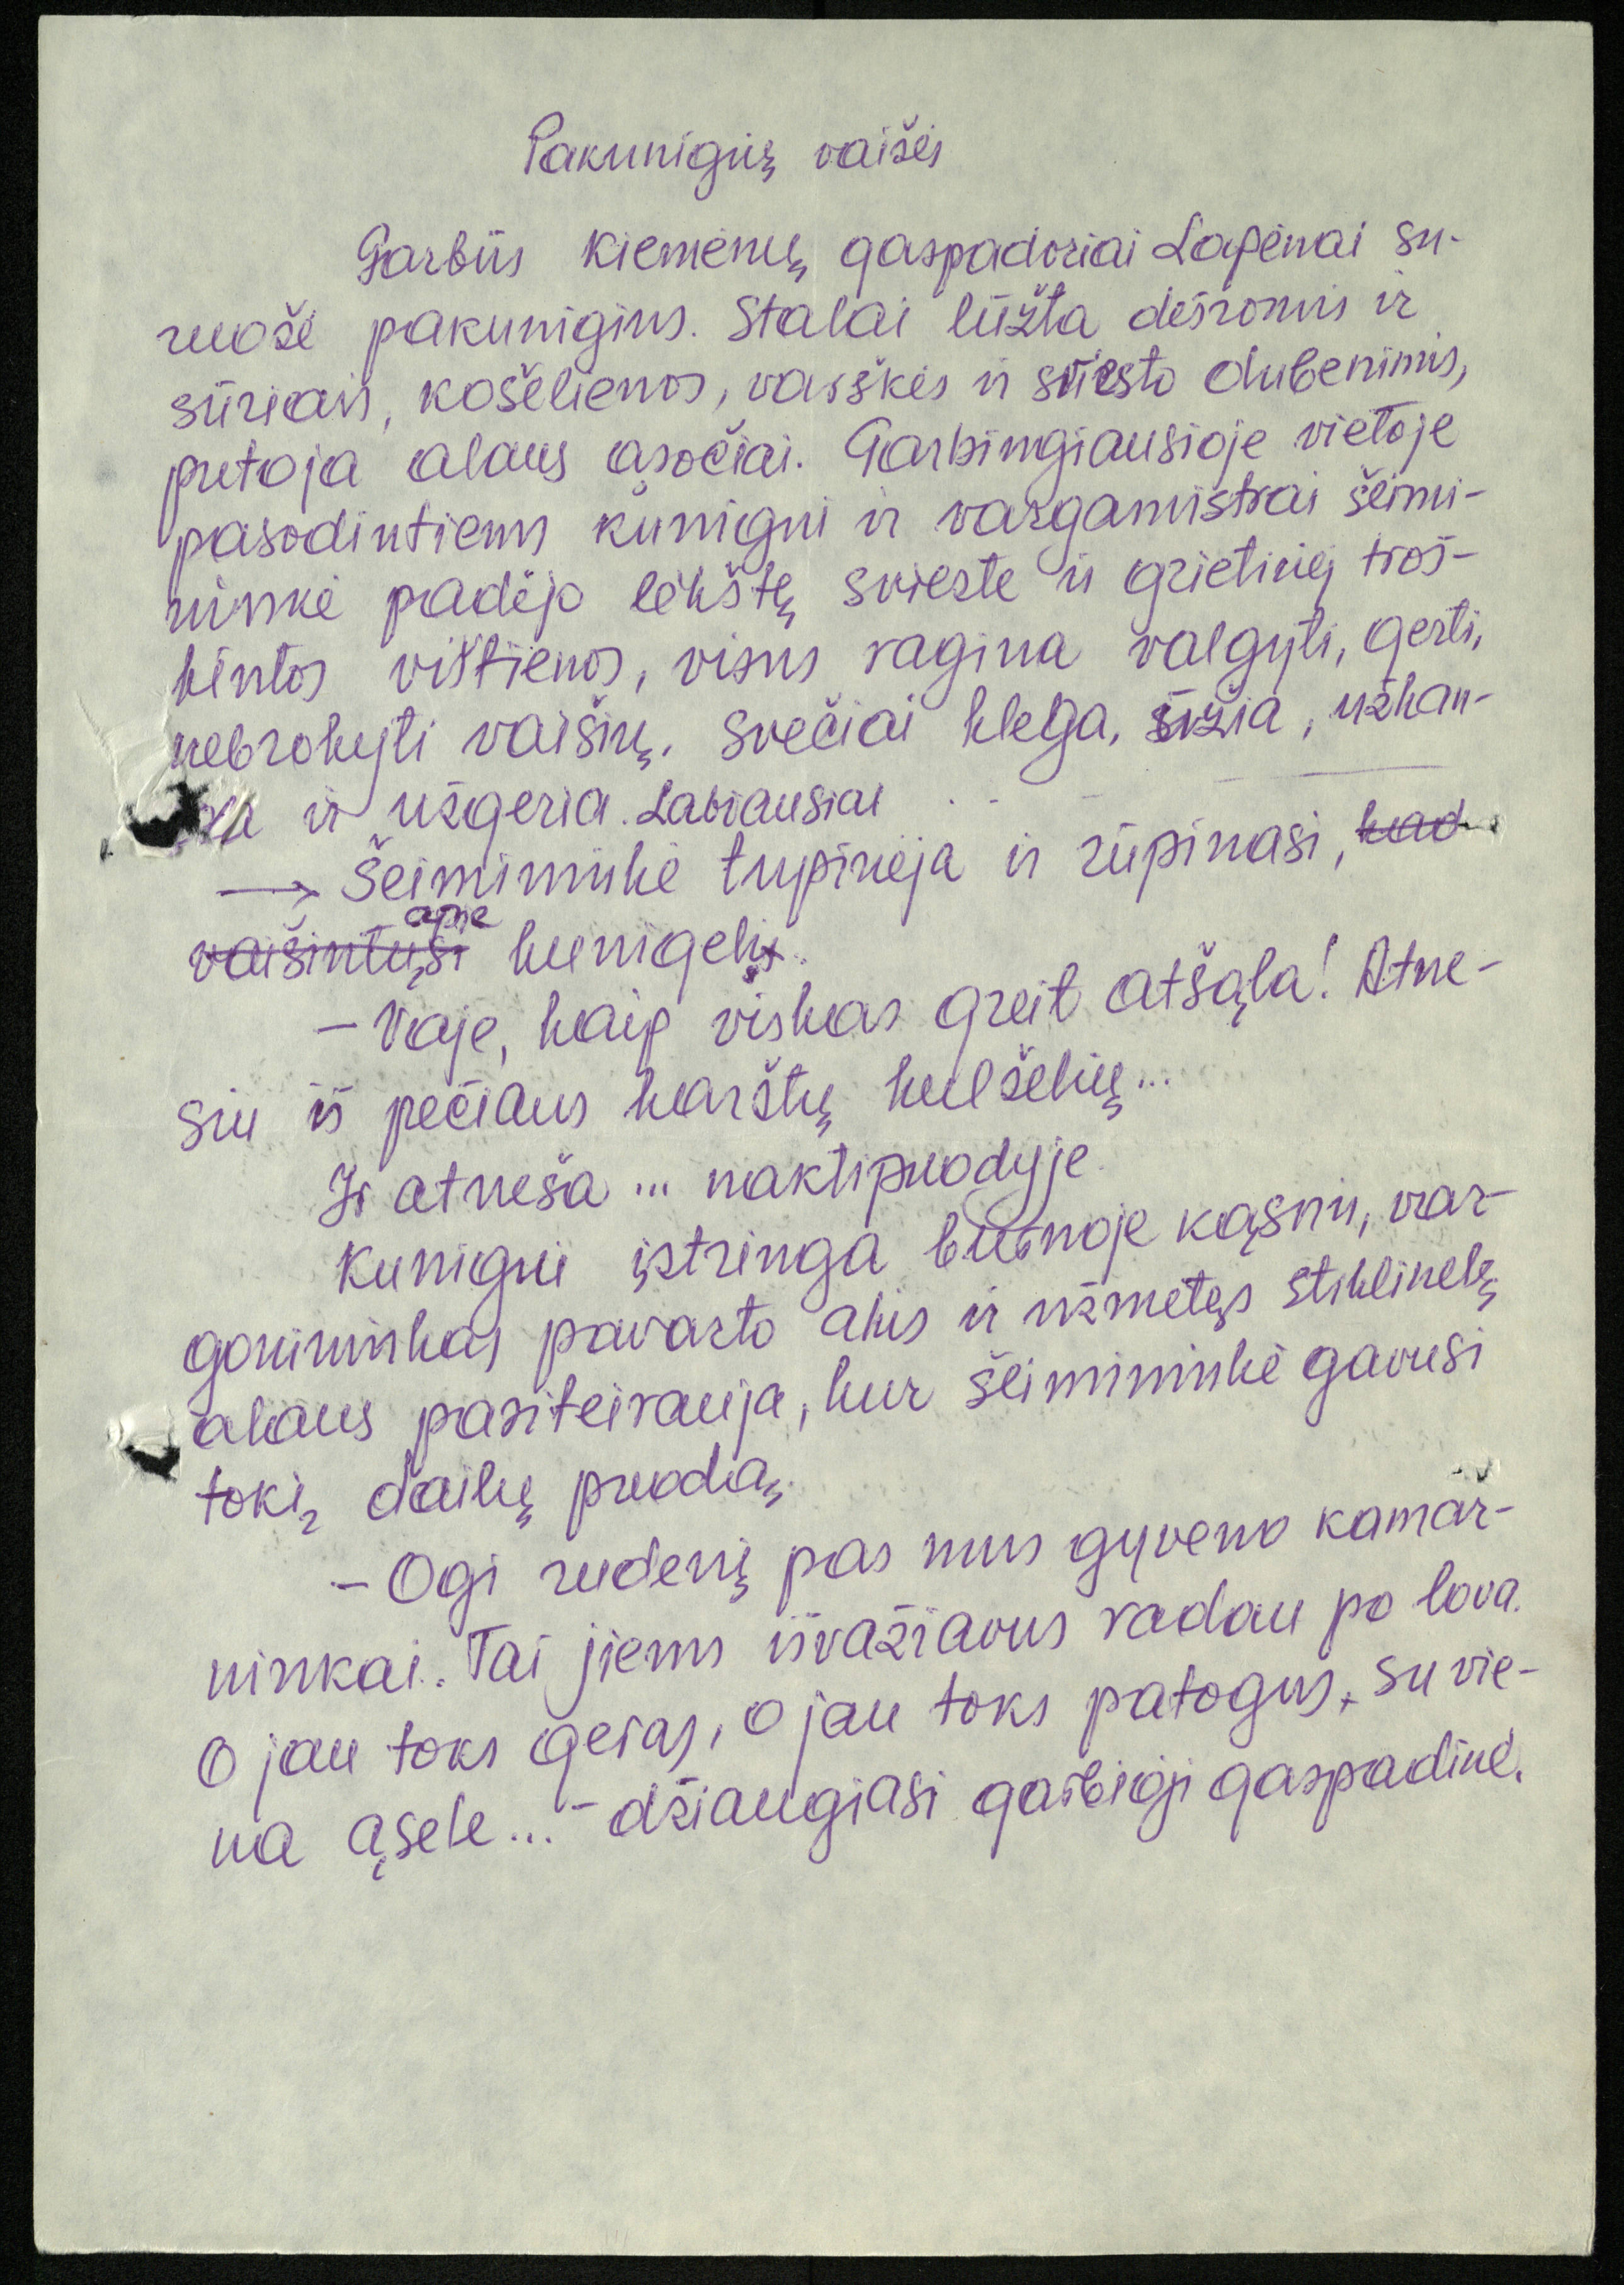 Pakunigių vaišės
Garbūs Kiemėnų gaspadoriai Lapėnai su-
ruošė pakunigius. Stalai lūžta dešromis ir
sūriais, košelienos, varškės ir sviesto dubenimis,
putoja alaus ąsočiai. Garbingiausioje vietoje
pasodintiems kunigui ir vargamistrai šeimi-
ninkė padėjo lėkštę svieste ir grietinėj troš-
kintos vištienos, visus ragina valgyti, gerti,
nebrokyti vaišių. Svečiai klega, ūžia, užkan-
da ir užgeria. Labiausiai
→ Šeimininkė tupinėja ir rūpinasi, kad
vaišintųsi apie kunigėlį.
– Vaje, kaip viskas greit atšąla! Atne-
siu iš pečiaus karštų kulšelių...
Ir atneša ... naktipuodyje.
Kunigui įstringa burnoje kąsnis, var-
gonininkas pavarto akis ir užmetęs stiklinėlę
alaus pasiteirauja, kur šeimininkė gavusi
tokį dailų puodą.
– Ogi rudenį pas mus gyveno kamar-
ninkai. Tai jiems išvažiavus radau po lova.
O jau toks geras, o jau toks patogus, su vie-
na ąsele... – džiaugiasi garbioji gaspadinė.